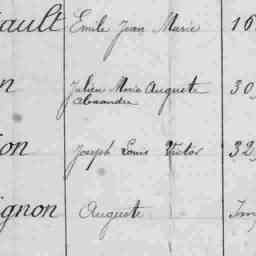 ault Emile Jean Marie 16
n Julien Marie Auguste 30
Alexandre
on Joseph Louis Victor 32
ignon Auguste Im